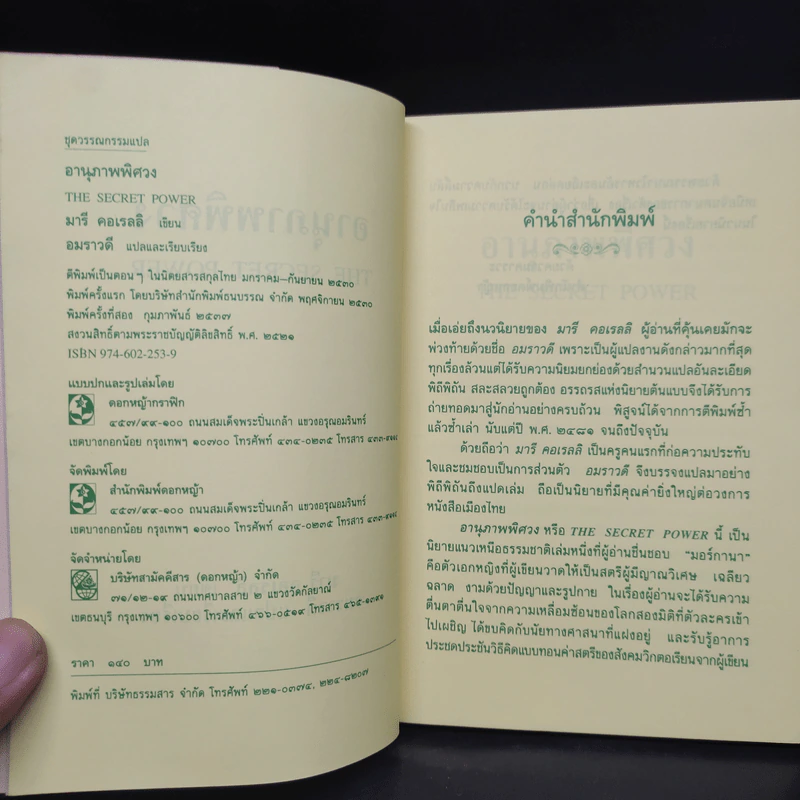 ชุดวรรณกรรมแปล
อานุภาพพิศวง
THE SECRET POWER
มารี คอเรลลิ เขียน
อมราวดี แปลและเรียบเรียง
ตีพิมพ์เป็นตอน ๆ ในนิตยสารสกุลไทย มกราคม—กันยายน ๒๕๓๐
พิมพ์ครั้งแรก โดยบริษัทสำนักพิมพ์ธนบรรณ จำกัด พฤศจิกายน ๒๕๓๐
พิมพ์ครั้งที่สอง กุมภาพันธ์ ๒๕๓๗
สงวนสิทธิ์ตามพระราชบัญญัติลิขสิทธิ์ พ.ศ. ๒๕๒๑
ISBN 974-602-253-9
แบบปกและรูปเล่มโดย
ดอกหญ้ากราฟิก
๔๕๗/๙๙-๑๐๐ ถนนสมเด็จพระปิ่นเกล้า แขวงอรุณอมรินทร์
เขตบางกอกน้อย กรุงเทพฯ ๑๐๗๐๐ โทรศัพท์ ๔๓๔-๐๒๓๕ โทรสาร
จัดพิมพ์โดย
สำนักพิมพ์ดอกหญ้า
๔๕๗/๙๙-๑๐๐ ถนนสมเด็จพระปิ่นเกล้า แขวงอรุณอมรินทร์
เขตบางกอกน้อย กรุงเทพฯ ๑๐๗๐๐ โทรศัพท์ ๔๓๔-๐๒๓๕ โทรสาร
จัดจำหน่ายโดย
บริษัทสามัคคีสาร (ดอกหญ้า) จำกัด
๗๑/๑๒-๑๙ ถนนเทศบาลสาย ๒ แขวงวัดกัลยาณ์
เขตธนบุรี กรุงเทพฯ ๑๐๖๐๐ โทรศัพท์ ๔๖๖-๐๕๑๙ โทรสาร ๔๖๕-๑๓๙๑
ราคา ๑๔๐ บาท
พิมพ์ที่ บริษัทธรรมสาร จำกัด โทรศัพท์ ๒๒๑-๐๓๗๔, ๒๒๔-๘๒๐๗
คำนำสำนักพิมพ์
เมื่อเอ่ยถึงนวนิยายของ มารี คอเรลลิ ผู้อ่านที่คุ้นเคยมักจะ
พ่วงท้ายด้วยชื่อ อมราวดี เพราะเป็นผู้แปลงานดังกล่าวมากที่สุด
ทุกเรื่องล้วนแต่ได้รับความนิยมยกย่องด้วยสำนวนแปลอันละเอียด
พิถีพิถัน สละสลวยถูกต้อง อรรถรสแห่งนิยายต้นแบบจึงได้รับการ
ถ่ายทอดมาสู่นักอ่านอย่างครบถ้วน พิสูจน์ได้จากการตีพิมพ์ซ้ำ
แล้วซ้ำเล่า นับแต่ปี พ.ศ. ๒๔๘๑ จนถึงปัจจุบัน
ด้วยถือว่า มารี คอเรลลิ เป็นครูคนแรกที่ก่อความประทับ
ใจและชมชอบเป็นการส่วนตัว อมราวดี จึงบรรจงแปลมาอย่าง
พิถีพิถันถึงแปดเล่ม ถือเป็นนิยายที่มีคุณค่ายิ่งใหญ่ต่อวงการ
หนังสือเมืองไทย
อานุภาพพิศวง หรือ THE SECRET POWER นี้ เป็น
นิยายแนวเหนือธรรมชาติเล่มหนึ่งที่ผู้อ่านชื่นชอบ "มอร์กานา"
คือตัวเอกหญิงที่ผู้เขียนวาดให้เป็นสตรีผู้มีญาณวิเศษ เฉลียว
ฉลาด งามด้วยปัญญาและรูปกาย ในเรื่องผู้อ่านจะได้รับความ
ตื่นตาตื่นใจจากความเหลื่อมซ้อนของโลกสองมิติที่ตัวละครเข้า
ไปเผชิญ ได้ขบคิดกับนัยทางศาสนาที่แฝงอยู่ และรับรู้อาการ
ประชดประชันวิธีคิดแบบทอนค่าสตรีของสังคมวิกตอเรียนจากผู้เขียน